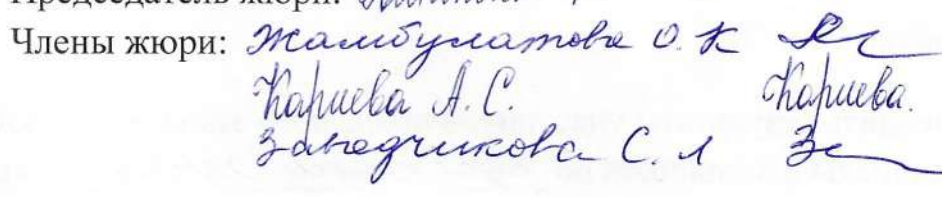 Председатель жюри:
Члены жюри: Жамбулатова О. К
Кариева А. С. Кариева.
Заводчикова С. Л